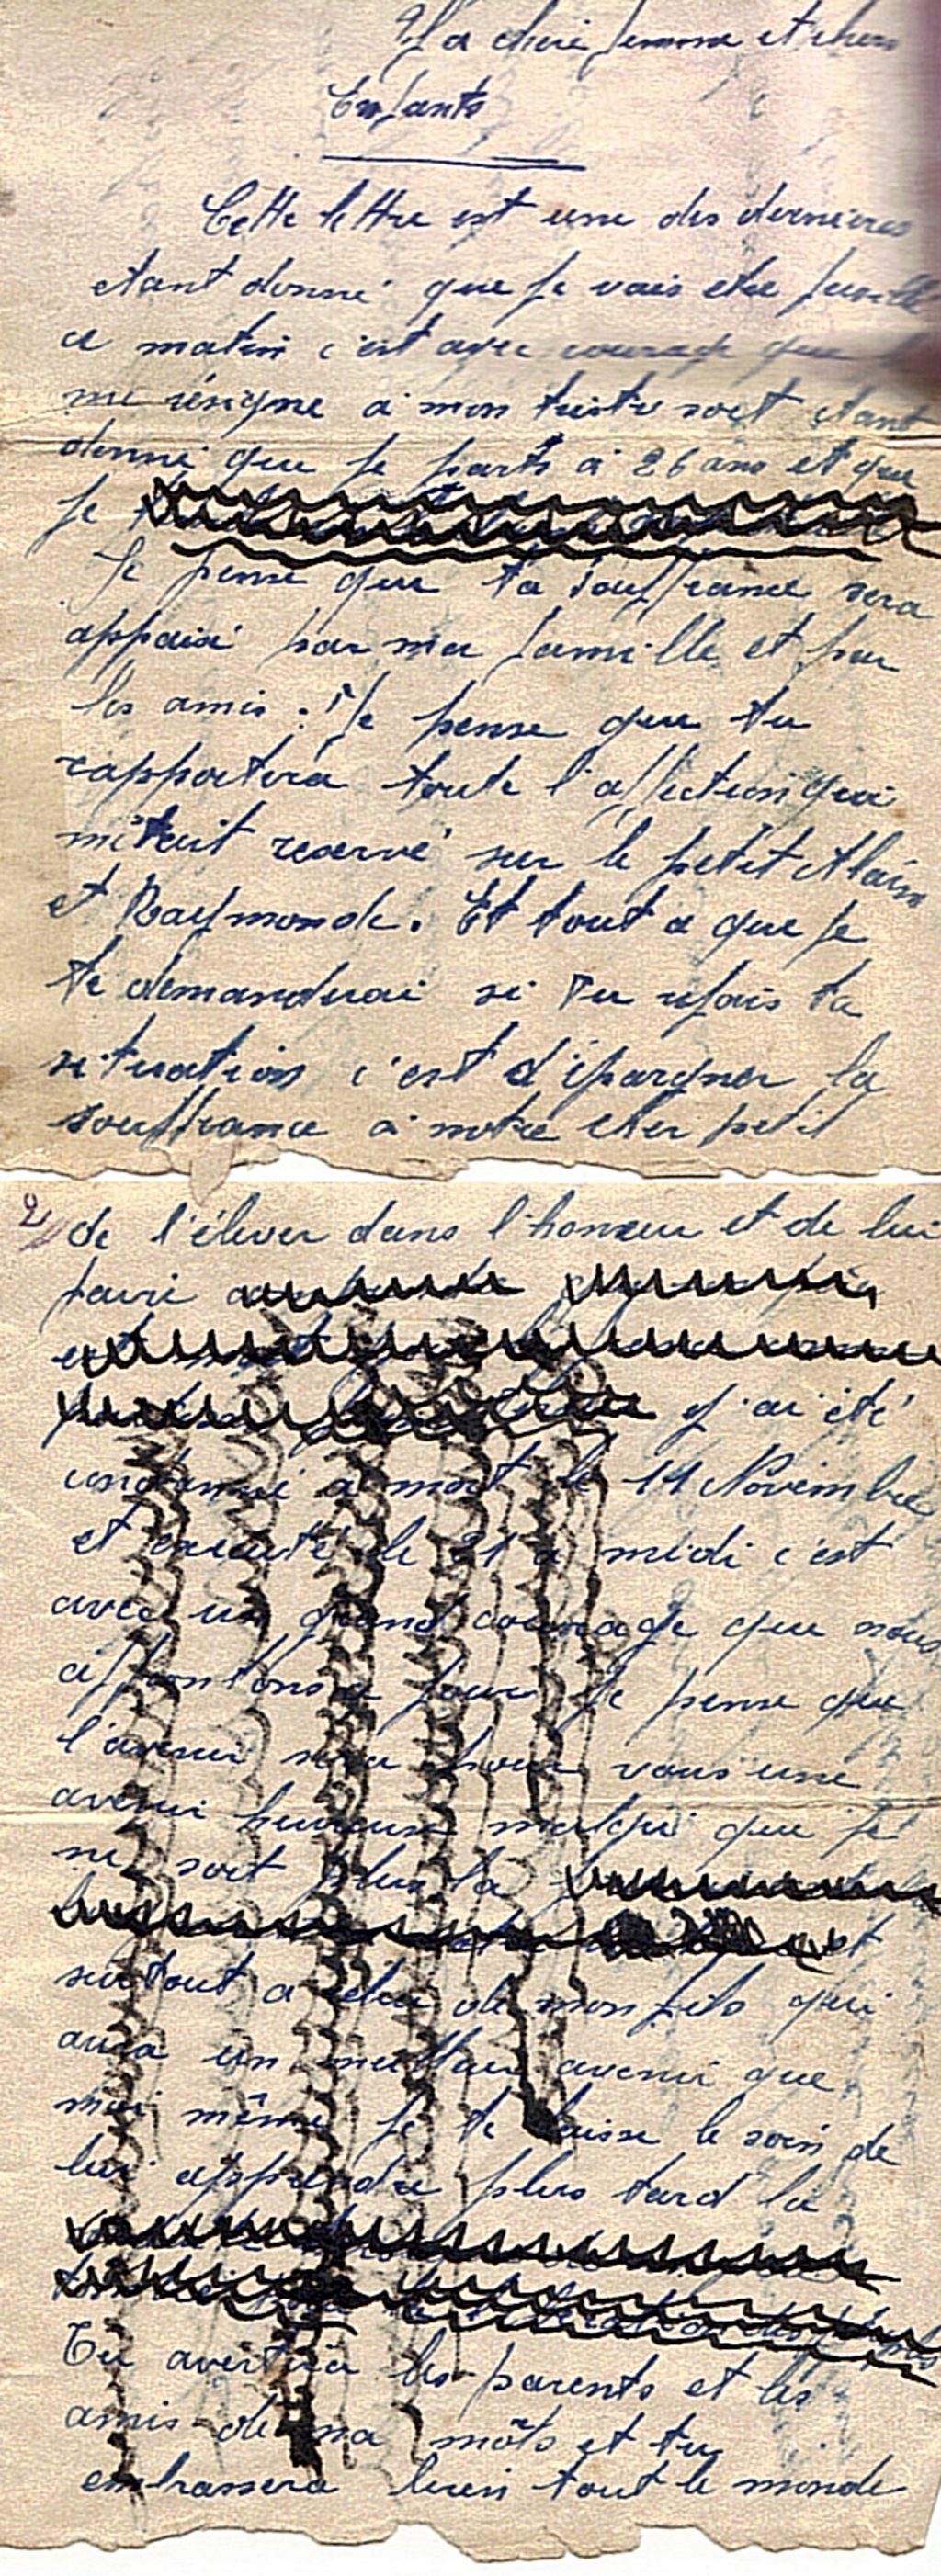 Ma cherie femme et chers
Enfants
Cette lettre est une des dernieres
etant donné que je vais etre fusillé
ce matin c'est avec courage que je
me résigne a mon triste sort étant
donné que je parts a 26 ans et que
je
Je pense que ta souffrance sera
appaisé par ma famille et par
les amis : Je pense que tu
rapportera toute l'affection qui
m'etait reservé sur le petit Alain
et Raymonde. Et tout ce que je
te demanderai si tu refais ta
situation c'est d'épargner la
souffrance a notre cher petit
2 de l'élever dans l'honneur et de lui
faire
j'ai été
condamné a mort le 14 Novembre
et executé le 21 a midi c'est
avec un grand courage que nous
affrontons ce jour je pense que
l'avenir sera pour vous une
avenir heureux malgré que je
ne soit plus la
et
surtout a celui de mon fils qui
aura un meilleur avenir que
moi même je te laisse le soin de
lui apprendre plus tard la
Tu avertira les parents et les
amis de ma mōts et tu
embrassera bien tout le monde